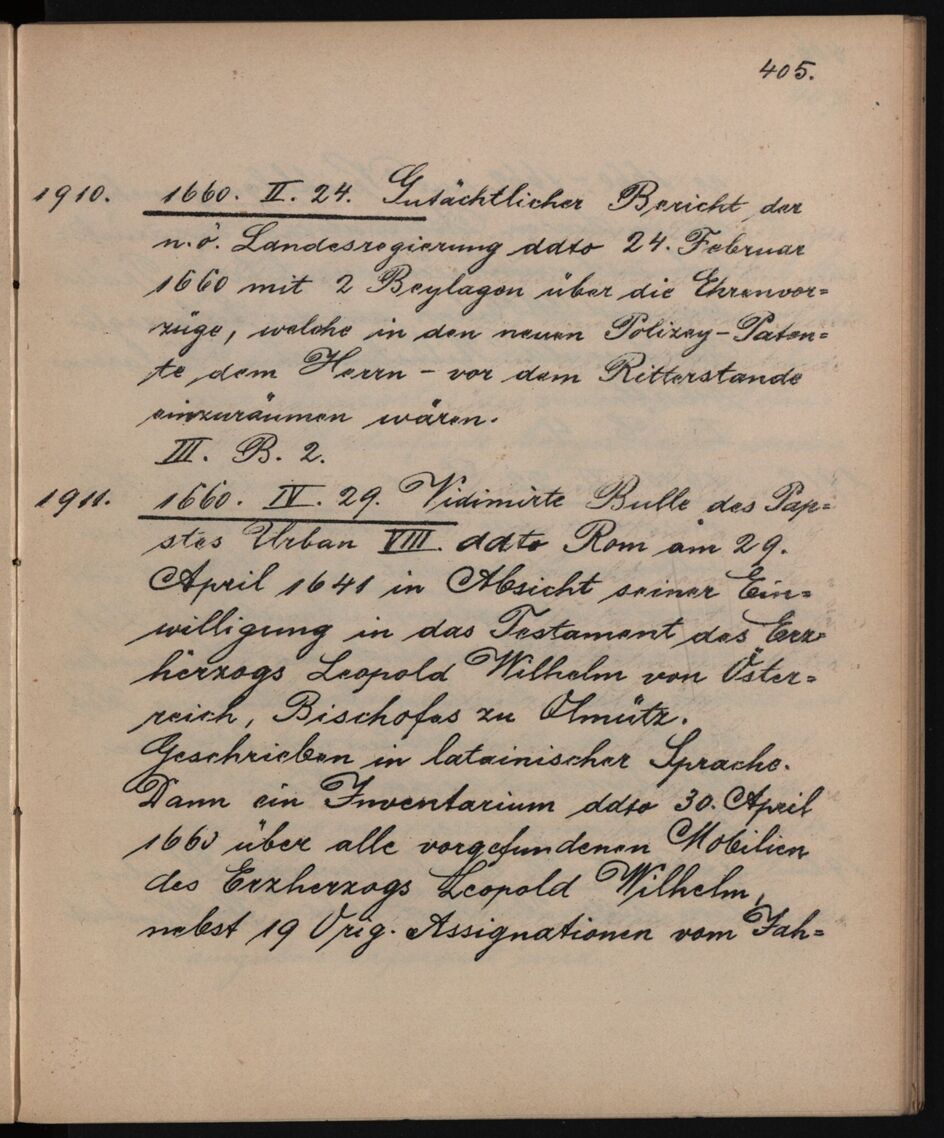 405.
1910. 1660. II. 24. Gutächtlicher Bericht der
n.ö. Landesregierung ddto 24. Februar
1660 mit 2 Beylagen über die Ehrenvor=
züge, welche in den neuen Polizey-Paten=
te dem Herrn - vor dem Ritterstande
einzuräumen wären.
III. B. 2.
1911. 1660. IV. 29. Vidimirte Bulle des Pap=
stes Urban VIII. ddto Rom am 29.
April 1641 in Absicht seiner Ein=
willigung in das Testament des Erz=
herzogs Leopold Wilhelm von Öster=
reich, Bischofes zu Olmütz.
Geschrieben in latainischer Sprache.
Dann ein Inventarium ddto 30. April
1660 über alle vorgefundenen Mobilien
des Erzherzogs Leopold Wilhelm,
nebst 19 Orig. Assignationen vom Jah=